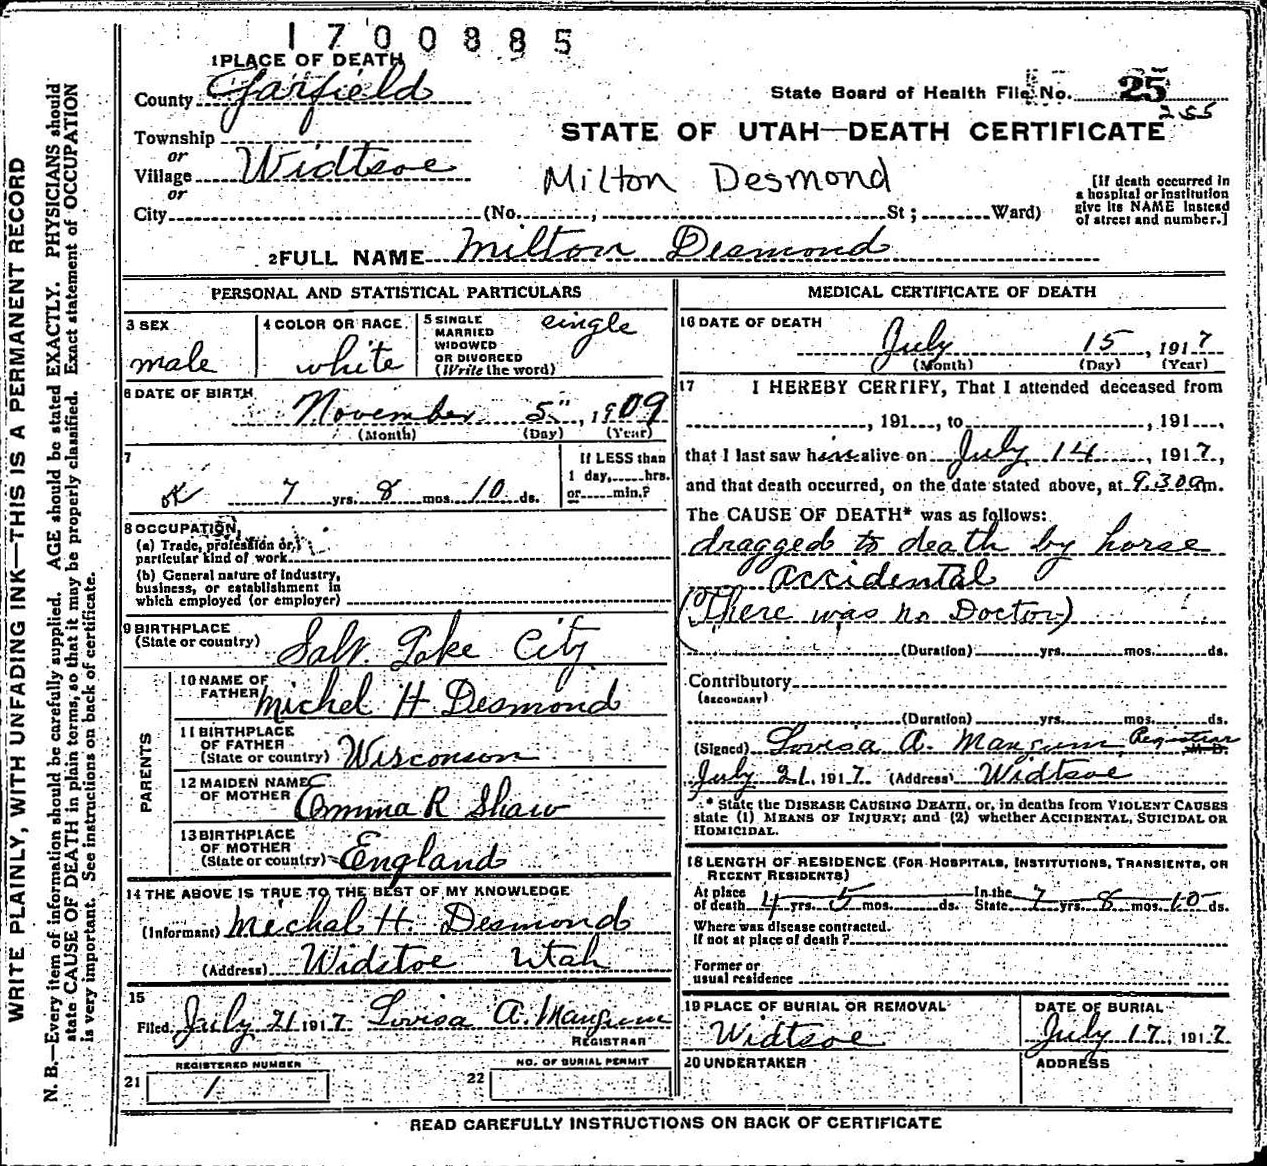 1700885
1 PLACE OF DEATH
County Garfield
State Board of Health File No. 25
255
Township
STATE OF UTAH—DEATH CERTIFICATE
or
Village Widtsoe
Milton Desmond
or
[If death occurred in
a hospital or institution
give its NAME instead
of street and number.]
City (No. , St; Ward)
2 FULL NAME Milton Desmond
PERSONAL AND STATISTICAL PARTICULARS
3 SEX
male
4 COLOR OR RACE
white
5 SINGLE
MARRIED
WIDOWED
OR DIVORCED
(Write the word)
single
6 DATE OF BIRTH
November 5", 1909
(Month) (Day) (Year)
7
OK 7 yrs. 8 mos. 10 ds.
If LESS than
1 day, hrs.
or min.?
8 OCCUPATION
(a) Trade, profession or,
particular kind of work
(b) General nature of industry,
business, or establishment in
which employed (or employer)
9 BIRTHPLACE
(State or country) Salt Lake City
PARENTS
10 NAME OF
FATHER Michel H Desmond
11 BIRTHPLACE
OF FATHER
(State or country) Wisconson
12 MAIDEN NAME
OF MOTHER Emma R Shaw
13 BIRTHPLACE
OF MOTHER
(State or country) England
14 THE ABOVE IS TRUE TO THE BEST OF MY KNOWLEDGE
(Informant) Michal H. Desmond
(Address) Widstoe Utah
15
Filed July 21 1917. Lovisa A. Mangum
REGISTRAR
REGISTERED NUMBER
21 1
NO. OF BURIAL PERMIT
22
MEDICAL CERTIFICATE OF DEATH
16 DATE OF DEATH
July 15, 1917
(Month) (Day) (Year)
17 I HEREBY CERTIFY, That I attended deceased from
, 191 , to , 191 ,
that I last saw him alive on July 14, 1917,
and that death occurred, on the date stated above, at 9.30 am.
The CAUSE OF DEATH* was as follows:
dragged to death by horse
accidental
(There was no Doctor)
(Duration) yrs. mos. ds.
Contributory
(SECONDARY)
(Duration) yrs. mos. ds.
(Signed) Lovisa A. Mangum, Registrar M. D.
July 21, 1917. (Address) Widtsoe
* State the DISEASE CAUSING DEATH, or, in deaths from VIOLENT CAUSES
state (1) MEANS OF INJURY; and (2) whether ACCIDENTAL, SUICIDAL OR
HOMICIDAL.
18 LENGTH OF RESIDENCE (FOR HOSPITALS, INSTITUTIONS, TRANSIENTS, OR
RECENT RESIDENTS)
At place
of death 4 yrs. 5 mos. ds.
In the
State 7 yrs. 8 mos. 10 ds.
Where was disease contracted.
If not at place of death?
Former or
usual residence
19 PLACE OF BURIAL OR REMOVAL
Widtsoe
DATE OF BURIAL
July 17, 1917.
20 UNDERTAKER
ADDRESS
READ CAREFULLY INSTRUCTIONS ON BACK OF CERTIFICATE
WRITE PLAINLY, WITH UNFADING INK—THIS IS A PERMANENT RECORD
N. B.—Every item of information should be carefully supplied. AGE should be stated EXACTLY. PHYSICIANS should
state CAUSE OF DEATH in plain terms, so that it may be properly classified. Exact statement of OCCUPATION
is very important. See instructions on back of certificate.